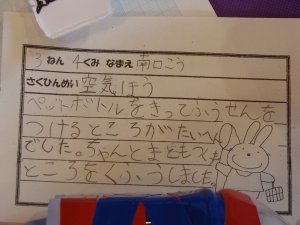 3 ねん 4 くみ なまえ 南口こう
さくひんめい 空気ほう
ペットボトルをきってふうせんを
つけるところがたいへん
でした。ちゃんとまともつくも
ところをくふうしました。